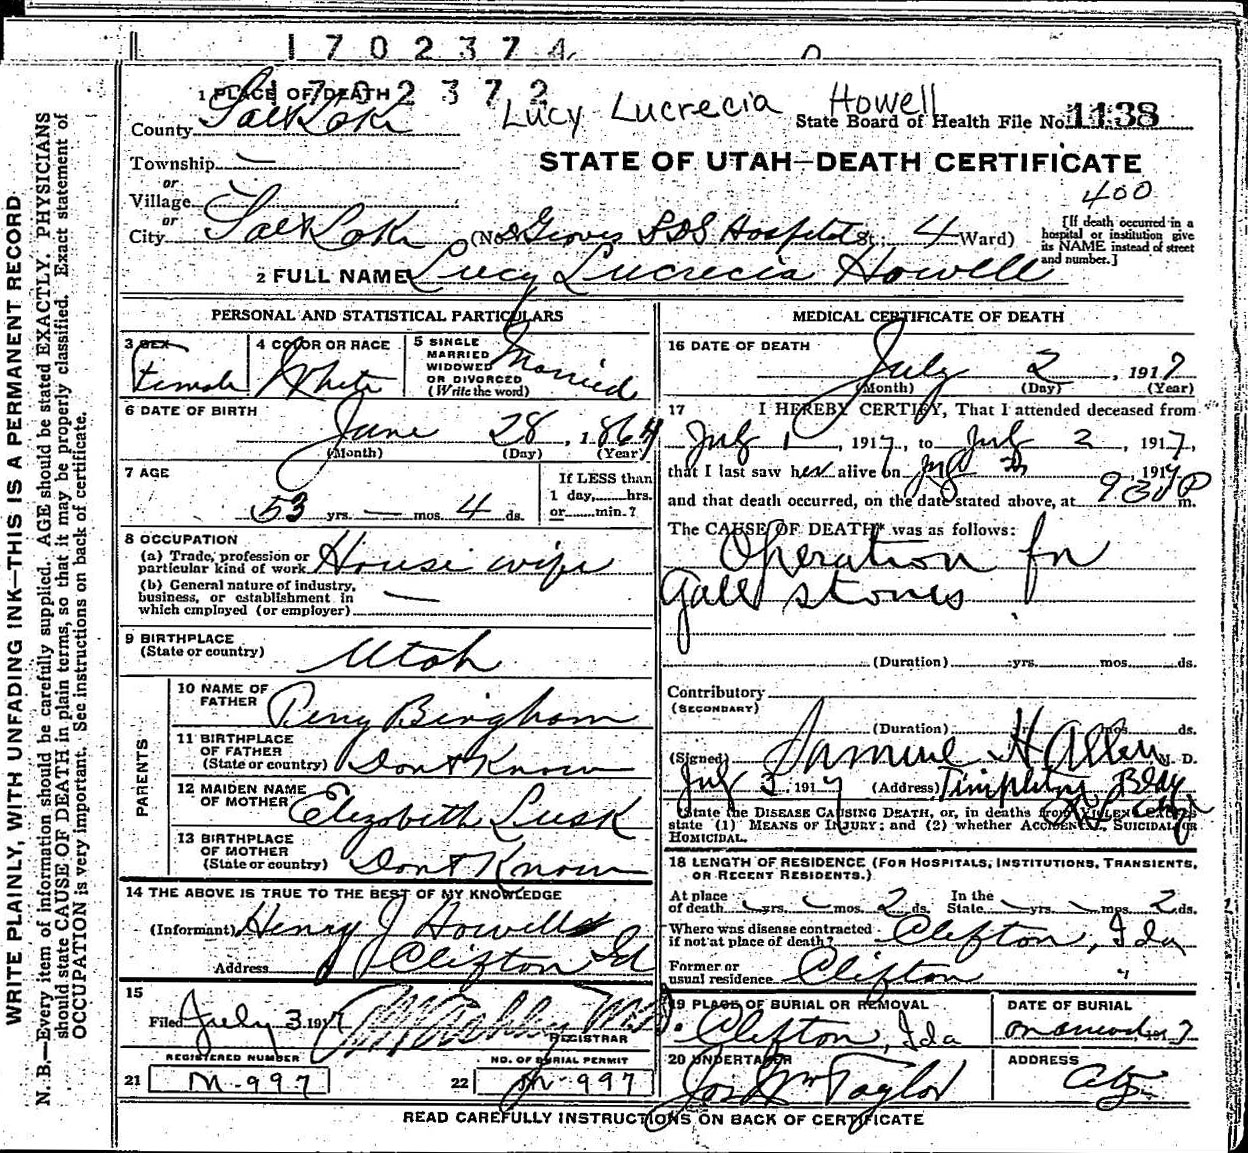 1702374
1702372
1 PLACE OF DEATH
Lucy Lucrecia Howell
County Salt Lake
State Board of Health File No. 1138
Township —
STATE OF UTAH—DEATH CERTIFICATE
or
Village
400
or
City Salt Lake (No. Groves LDS Hospital St.; 4 Ward)
[If death occurred in a hospital or institution give its NAME instead of street and number.]
2 FULL NAME Lucy Lucrecia Howell
PERSONAL AND STATISTICAL PARTICULARS
3 SEX Female
4 COLOR OR RACE White
5 SINGLE MARRIED WIDOWED OR DIVORCED (Write the word) Married
6 DATE OF BIRTH
June 28, 1864
(Month) (Day) (Year)
7 AGE
53 yrs. — mos. 4 ds.
If LESS than 1 day,......hrs. or......min.?
8 OCCUPATION
(a) Trade, profession or particular kind of work House wife
(b) General nature of industry, business, or establishment in which employed (or employer) —
9 BIRTHPLACE
(State or country) Utah
PARENTS
10 NAME OF FATHER Perry Bingham
11 BIRTHPLACE OF FATHER (State or country) Dont Know
12 MAIDEN NAME OF MOTHER Elizabeth Lusk
13 BIRTHPLACE OF MOTHER (State or country) Dont Know
14 THE ABOVE IS TRUE TO THE BEST OF MY KNOWLEDGE
(Informant) Henry J Howell
Address Clifton Id
15
Filed July 3 1917
REGISTRAR
REGISTERED NUMBER
21 M-997
NO. OF BURIAL PERMIT
22 M-997
MEDICAL CERTIFICATE OF DEATH
16 DATE OF DEATH
July 2, 1917
(Month) (Day) (Year)
17 I HEREBY CERTIFY, That I attended deceased from
July 1, 1917, to July 2, 1917,
that I last saw her alive on July 2, 1917
and that death occurred, on the date stated above, at 930 P m.
The CAUSE OF DEATH* was as follows:
Operation for
Gall stones
(Duration) yrs. mos. ds.
Contributory
(SECONDARY)
(Duration) yrs. mos. ds.
(Signed) Samuel H Allen M. D.
July 3, 1917 (Address) Templeton Bldg
*State the DISEASE CAUSING DEATH, or, in deaths from VIOLENT CAUSES state (1) MEANS OF INJURY; and (2) whether ACCIDENTAL, SUICIDAL OR HOMICIDAL.
18 LENGTH OF RESIDENCE (FOR HOSPITALS, INSTITUTIONS, TRANSIENTS, OR RECENT RESIDENTS.)
At place of death — yrs. — mos. 2 ds. In the State — yrs. — mos. 2 ds.
Where was disease contracted if not at place of death? Clifton, Ida
Former or usual residence Clifton "
19 PLACE OF BURIAL OR REMOVAL Clifton, Ida
DATE OF BURIAL 1917
20 UNDERTAKER Jos Wm Taylor
ADDRESS City
READ CAREFULLY INSTRUCTIONS ON BACK OF CERTIFICATE
WRITE PLAINLY, WITH UNFADING INK—THIS IS A PERMANENT RECORD
N. B.—Every item of information should be carefully supplied. AGE should be stated EXACTLY. PHYSICIANS
should state CAUSE OF DEATH in plain terms, so that it may be properly classified. Exact statement of
OCCUPATION is very important. See instructions on back of certificate.